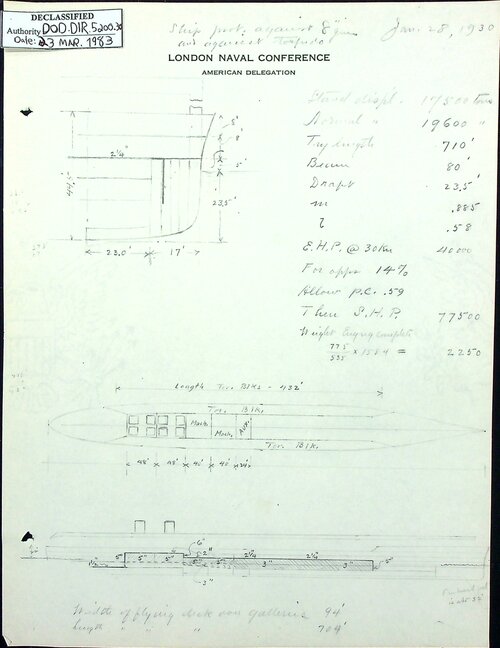 DECLASSIFIED
Authority DOD.DIR.5200.30
Date: 23 MAR. 1983
Ship prot. against 8" guns
and against torpedo
Jan. 28, 1930
LONDON NAVAL CONFERENCE
AMERICAN DELEGATION
Stand. displ. 17500 tons
Normal " 19600 "
Try length 710'
Beam 80'
Draft 23.5'
m .885
l .58
E.H.P. @ 30 Kn 40000
For apps 14%
Allow P.C. .59
Then S.H.P. 77500
Weight Engrg complete
775
535 x 1584 = 2250
8'
2 1/4"
5'
23.5'
23.0' 17'
Length Tor. Blks - 432'
Tor. Blk.
Mach. Mach. Aux.
Tor. Blk.
48' 48' 40' 40' 24'
6"
2"
2 1/4" 2 1/4"
5" 5" 3" 3" 5"
3"
Width of flying deck over galleries 94'
length " " " 704'